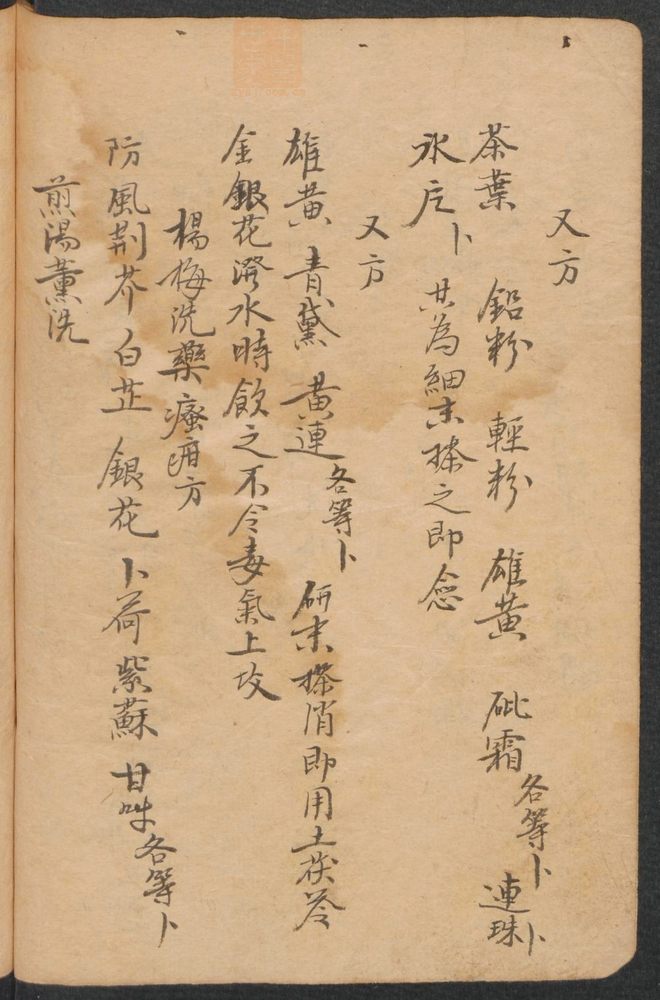 又方
茶葉 鉛粉 輕粉 雄黄 砒霜各等卜 連珠卜
氷片卜 共為細末搽之即愈
又方
雄黄 青黛 黄連各等卜 研末搽消即用土茯苓
金銀花澄水時飲之不令毒氣上攻
楊梅洗藥癢瘡方
防風荆芥白芷 銀花 卜荷紫蘇 甘艸各等卜
煎湯薰洗